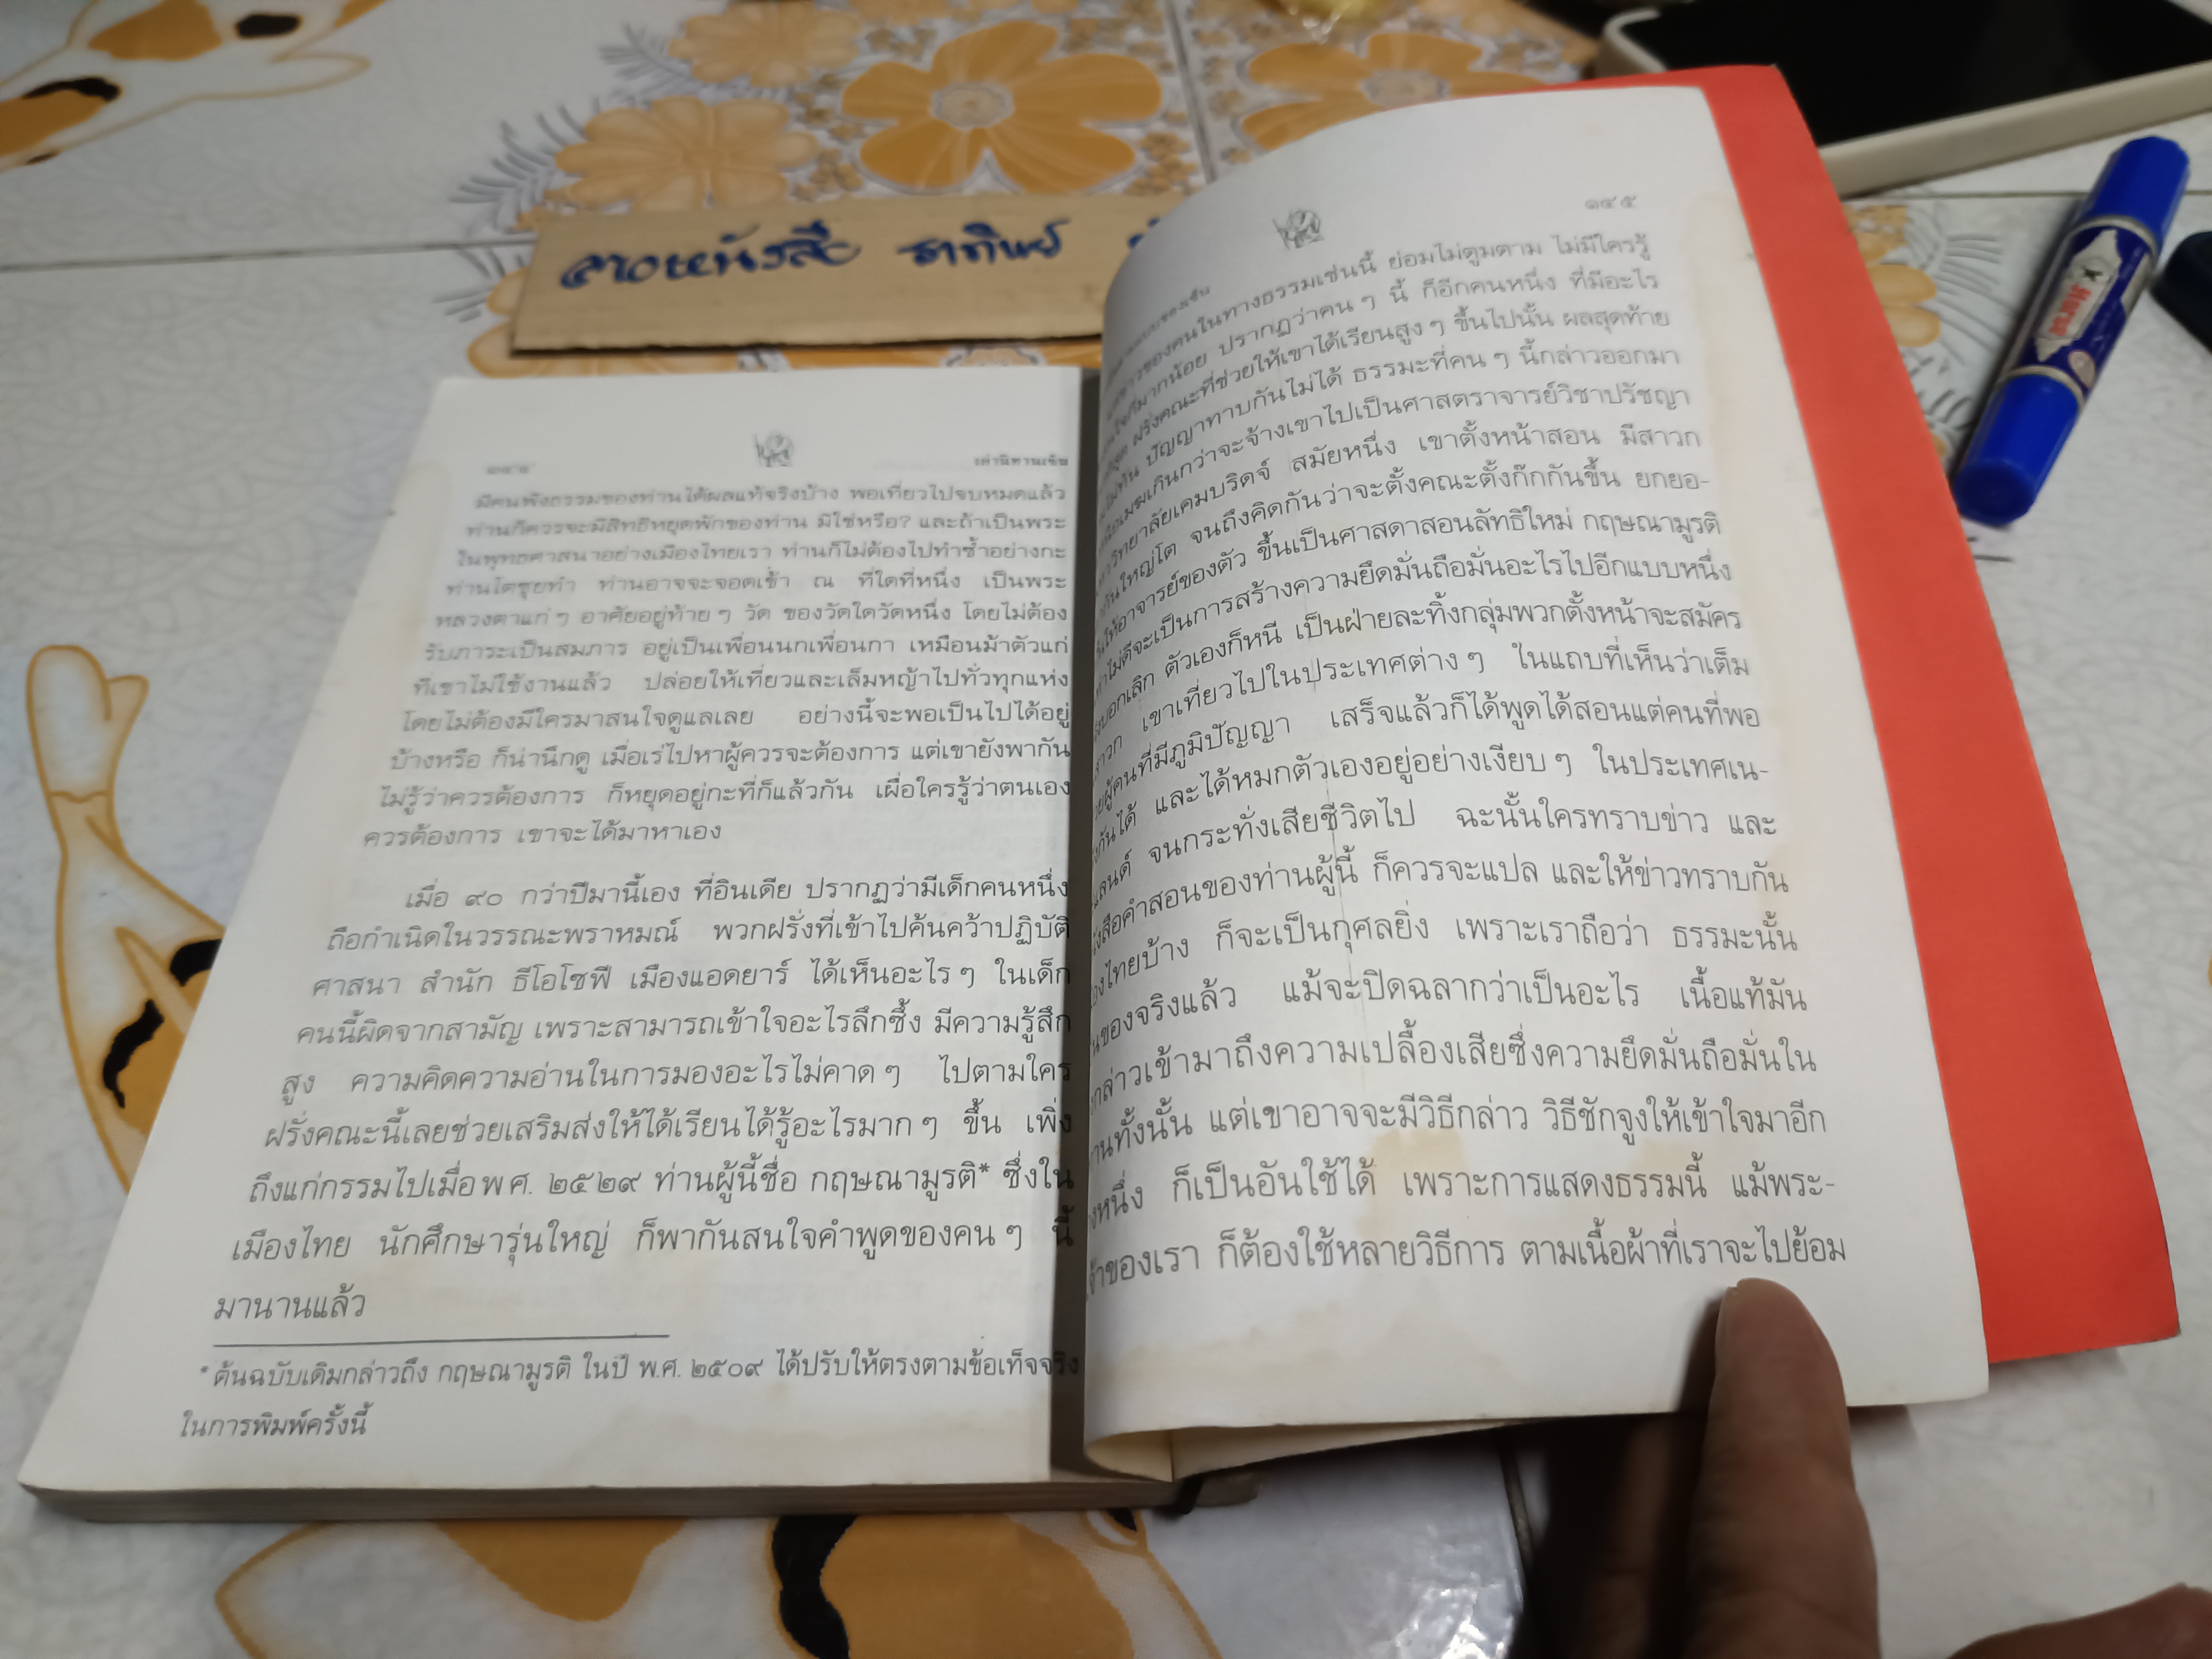 ลายหนังสือ ธาทิพย์
เล่านิทานเซ็น
มีคนฟังธรรมของท่านได้ผลแท้จริงบ้าง พอเที่ยวไปจบหมดแล้ว
ท่านก็ควรจะมีสิทธิหยุดพักของท่าน มิใช่หรือ? และถ้าเป็นพระ
ในพุทธศาสนาอย่างเมืองไทยเรา ท่านก็ไม่ต้องไปทำซ้ำอย่างกะ
ท่านโตซุยทำ ท่านอาจจะจอดเช้า ณ ที่ใดที่หนึ่ง เป็นพระ
หลวงตาแก่ๆ อาศัยอยู่ท้าย ๆ วัด ของวัดใดวัดหนึ่ง โดยไม่ต้อง
รับภาระเป็นสมภาร อยู่เป็นเพื่อนนกเพื่อนกา เหมือนม้าตัวแก่
ที่เขาไม่ใช้งานแล้ว ปล่อยให้เที่ยวและเล็มหญ้าไปทั่วทุกแห่ง
โดยไม่ต้องมีใครมาสนใจดูแลเลย อย่างนี้จะพอเป็นไปได้อยู่
บ้างหรือ ก็น่านึกดู เมื่อเร่ไปหาผู้ควรจะต้องการ แต่เขายังพากัน
ไม่รู้ว่าควรต้องการ ก็หยุดอยู่กะที่ก็แล้วกัน เผื่อใครรู้ว่าตนเอง
ควรต้องการ เขาจะได้มาหาเอง
เมื่อ ๙๐ กว่าปีมานี้เอง ที่อินเดีย ปรากฏว่ามีเด็กคนหนึ่ง
ถือกำเนิดในวรรณะพราหมณ์ พวกฝรั่งที่เข้าไปค้นคว้าปฏิบัติ
ศาสนา สำนัก ธีโอโซฟี เมืองแอดยาร์ ได้เห็นอะไร ๆ ในเด็ก
คนนี้ผิดจากสามัญ เพราะสามารถเข้าใจอะไรลึกซึ้ง มีความรู้สึก
สูง ความคิดความอ่านในการมองอะไรไม่คาด ๆ ไปตามใคร
ฝรั่งคณะนี้เลยช่วยเสริมส่งให้ได้เรียนได้รู้อะไรมาก ๆ ขึ้น เพิ่ง
ถึงแก่กรรมไปเมื่อ พ ศ. ๒๕๒๙ ท่านผู้นี้ชื่อ กฤษณามูรติ* ซึ่งใน
เมืองไทย นักศึกษารุ่นใหญ่ ก็พากันสนใจคำพูดของคน ๆ นี้
มานานแล้ว
* ต้นฉบับเดิมกล่าวถึง กฤษณามูรติ ในปี พ.ศ. ๒๕๐๙ ได้ปรับให้ตรงตามข้อเท็จจริง
ในการพิมพ์ครั้งนี้
๑๔๕
ของคนในทางธรรมเช่นนี้ ย่อมไม่ตูมตาม ไม่มีใครรู้
มากน้อย ปรากฏว่าคน ๆ นี้ ก็อีกคนหนึ่ง ที่มีอะไร
ฝรั่งคณะที่ช่วยให้เขาได้เรียนสูง ๆ ขึ้นไปนั้น ผลสุดท้าย
ปัญญาทาบกันไม่ได้ ธรรมะที่คน ๆ นี้กล่าวออกมา
เกินกว่าจะจ้างเขาไปเป็นศาสตราจารย์วิชาปรัชญา
วิทยาลัยเคมบริดจ์ สมัยหนึ่ง เขาตั้งหน้าสอน มีสาวก
กันใหญ่โต จนถึงคิดกันว่าจะตั้งคณะตั้งก๊กกันขึ้น ยกยอ-
ให้อาจารย์ของตัว ขึ้นเป็นศาสดาสอนลัทธิใหม่ กฤษณามูรติ
ไม่ดีจะเป็นการสร้างความยึดมั่นถือมั่นอะไรไปอีกแบบหนึ่ง
บอกเลิก ตัวเองก็หนี เป็นฝ่ายละทิ้งกลุ่มพวกตั้งหน้าจะสมัคร
เขาเที่ยวไปในประเทศต่าง ๆ ในแถบที่เห็นว่าเต็ม
ผู้คนที่มีภูมิปัญญา เสร็จแล้วก็ได้พูดได้สอนแต่คนที่พอ
กันได้ และได้หมกตัวเองอยู่อย่างเงียบ ๆ ในประเทศเน-
แลนด์ จนกระทั่งเสียชีวิตไป ฉะนั้นใครทราบข่าว และ
คำสอนของท่านผู้นี้ ก็ควรจะแปล และให้ข่าวทราบกัน
ไทยบ้าง ก็จะเป็นกุศลยิ่ง เพราะเราถือว่า ธรรมะนั้น
ของจริงแล้ว แม้จะปิดฉลากว่าเป็นอะไร เนื้อแท้มัน
กล่าวเข้ามาถึงความเปลื้องเสียซึ่งความยึดมั่นถือมั่นใน
ทั้งนั้น แต่เขาอาจจะมีวิธีกล่าว วิธีชักจูงให้เข้าใจมาอีก
หนึ่ง ก็เป็นอันใช้ได้ เพราะการแสดงธรรมนี้ แม้พระ-
เจ้าของเรา ก็ต้องใช้หลายวิธีการ ตามเนื้อผ้าที่เราจะไปย้อม